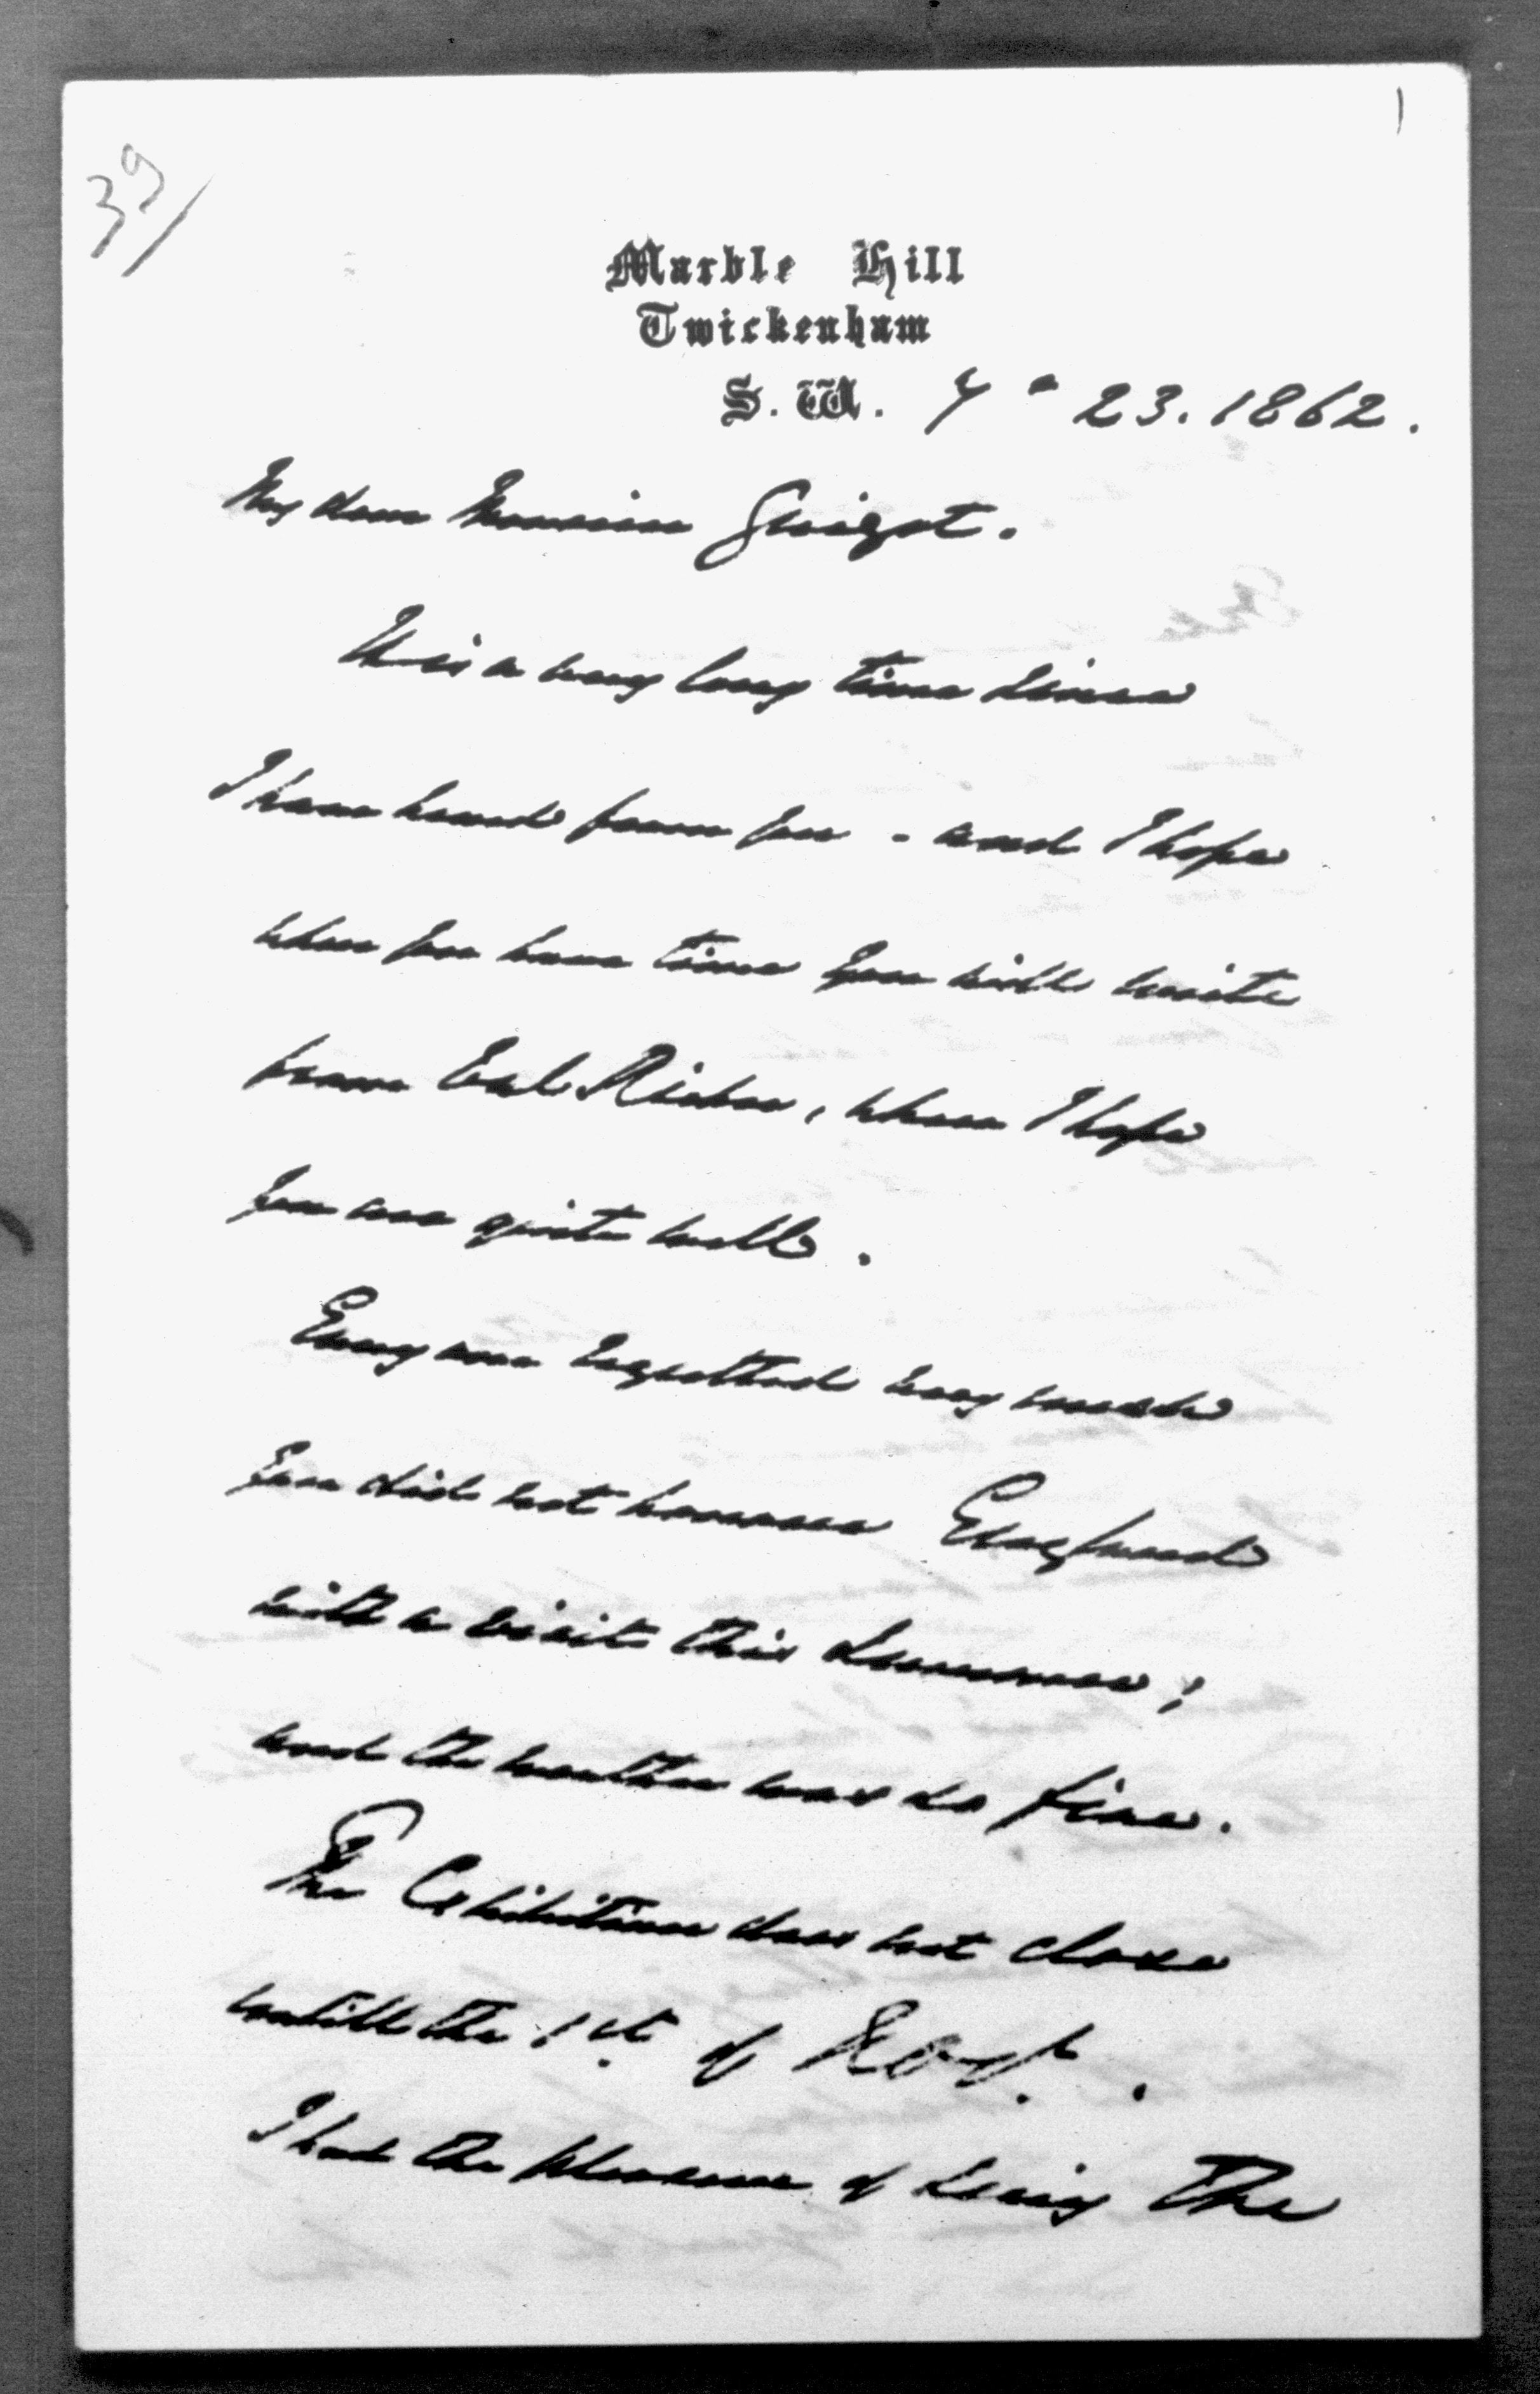 39/
1
Marble Hill
Twickenham
S. W. 7e 23. 1862.
My dear Monsieur Guizot.
It is a very long time since
I have heard from you - and I hope
when you have time you will write
from Val Richer, where I hope
you are quite well.
Every one regretted very much
you did not honour England
with a visit this summer;
and the weather was so fine.
The Exhibition does not close
until the 1st. of Nov.
I had the pleasure of seeing the